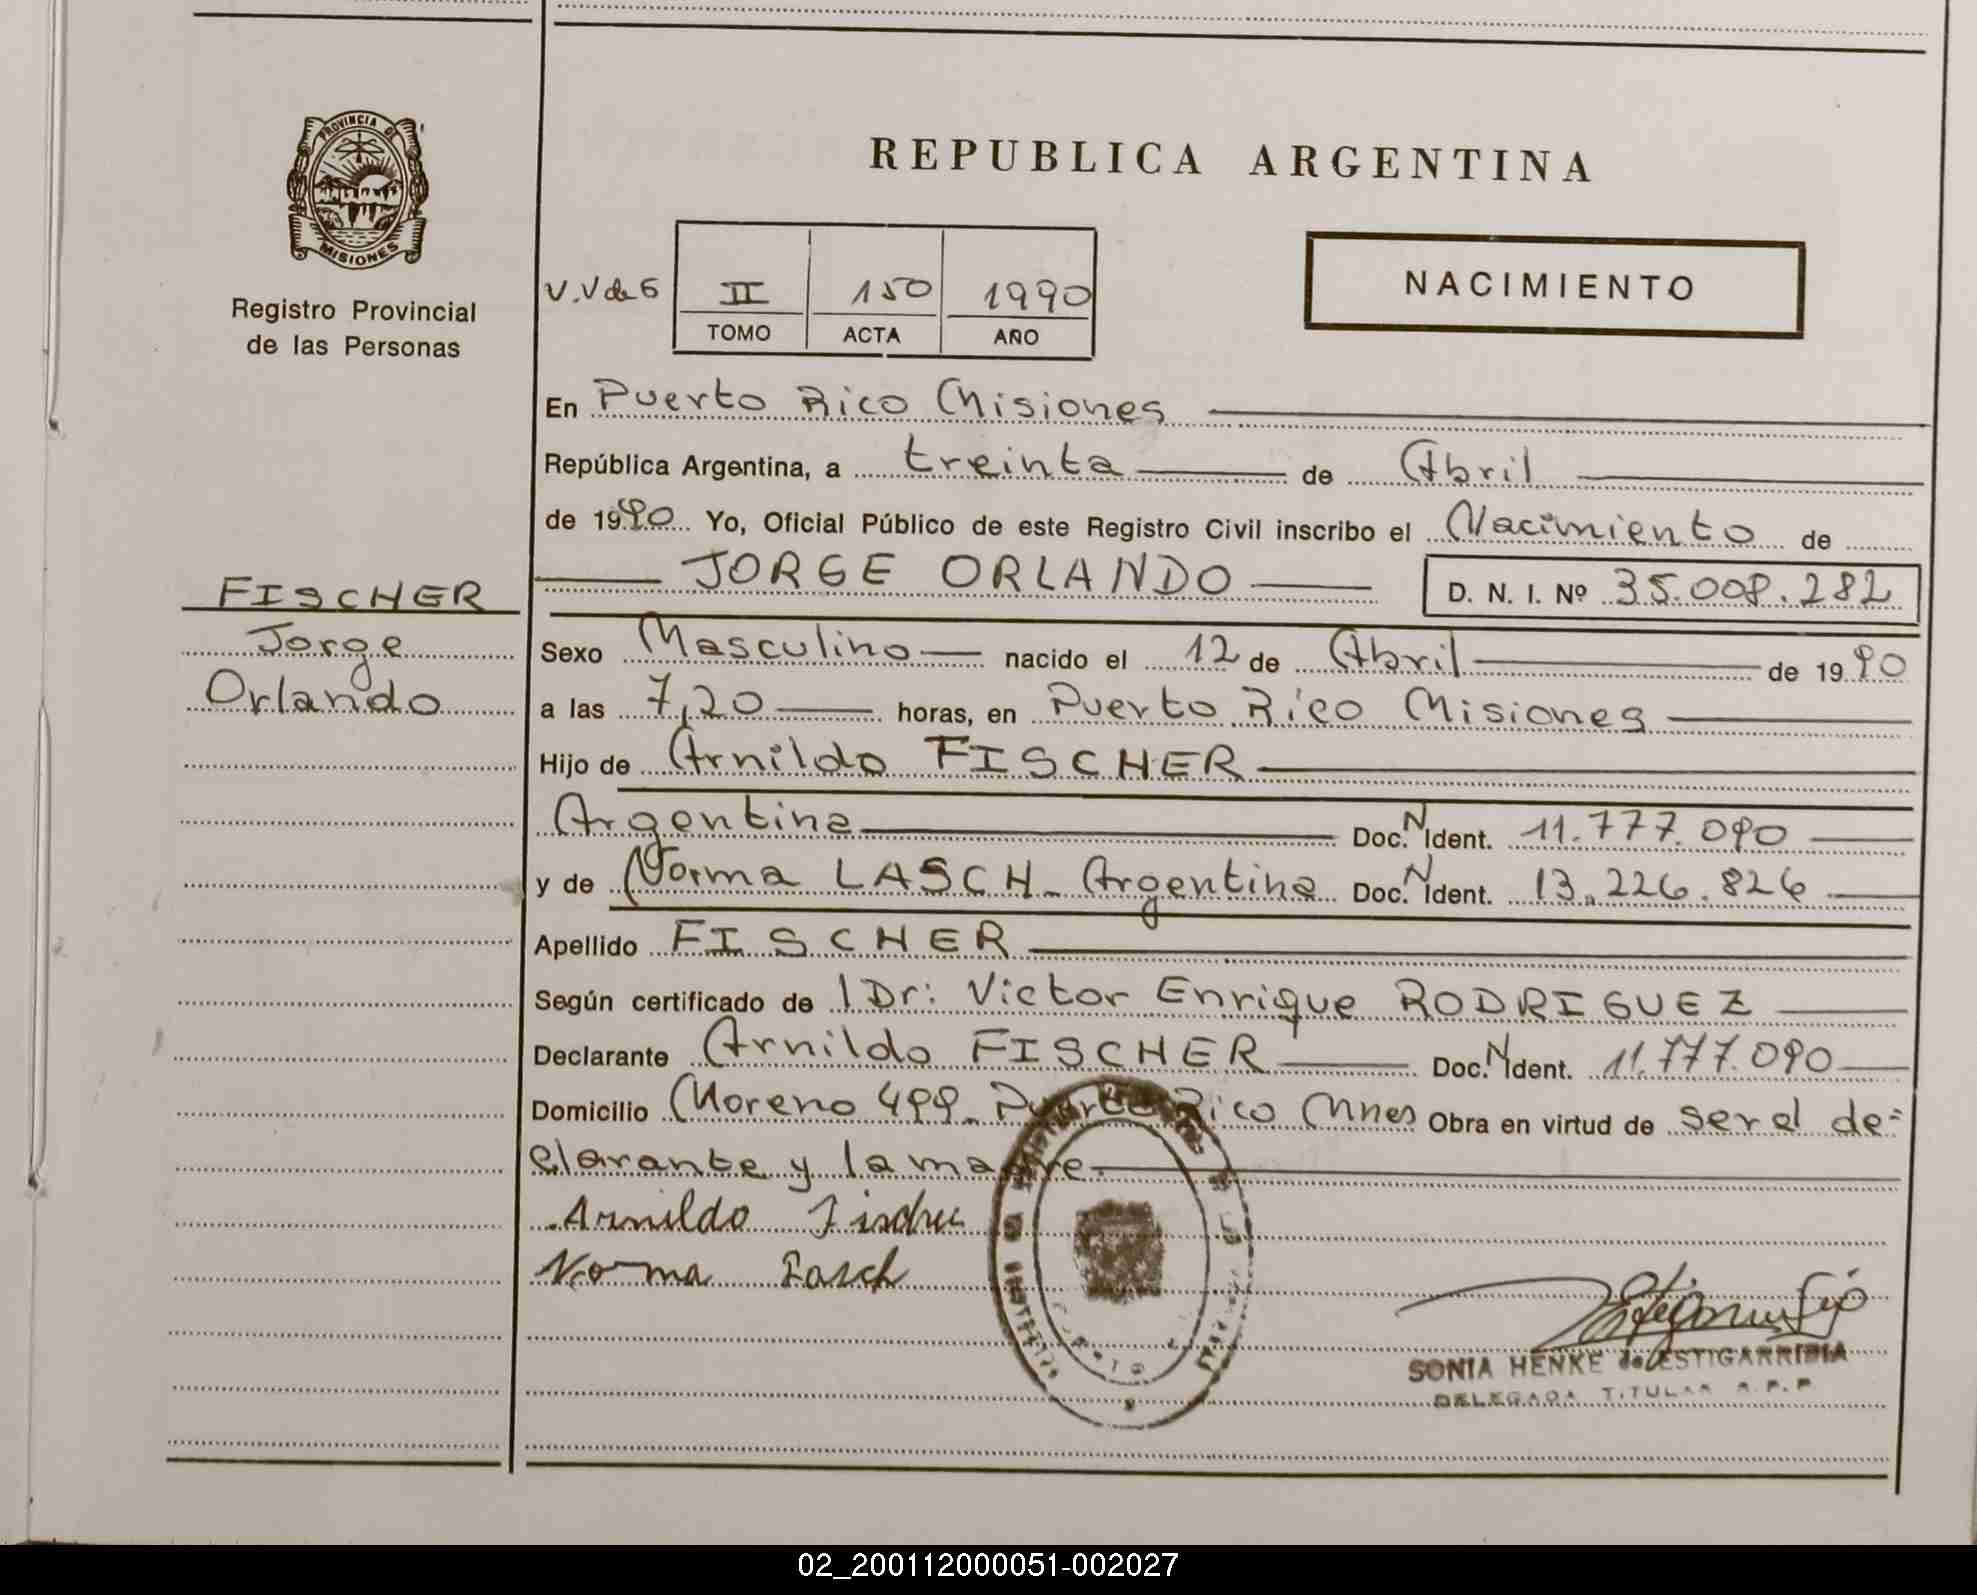 PROVINCIA DE
MISIONES
Registro Provincial
de las Personas
FISCHER
Jorge
Orlando
REPUBLICA ARGENTINA
V.V de G
II 150 1990
TOMO ACTA AÑO
NACIMIENTO
En Puerto Rico Misiones
República Argentina, a treinta de Abril
de 1990 Yo, Oficial Público de este Registro Civil inscribo el Nacimiento de
JORGE ORLANDO D. N. I. Nº 35.008.282
Sexo Masculino nacido el 12 de Abril de 1990
a las 7,20 horas, en Puerto Rico Misiones
Hijo de Arnildo FISCHER
Argentina Doc. N Ident. 11.777.090
y de Norma LASCH - Argentina Doc. N Ident. 13.226.826
Apellido FISCHER
Según certificado de l Dr: Victor Enrique RODRIGUEZ
Declarante Arnildo FISCHER Doc. N Ident. 11.777.090
Domicilio Moreno 499 - Puerto Rico Mnes Obra en virtud de ser el de-
clarante y la madre
Arnildo Fischer
Norma Lasch
SONIA HENKE de ESTIGARRIBIA
DELEGADA TITULAR R.P.P.
02_200112000051-002027